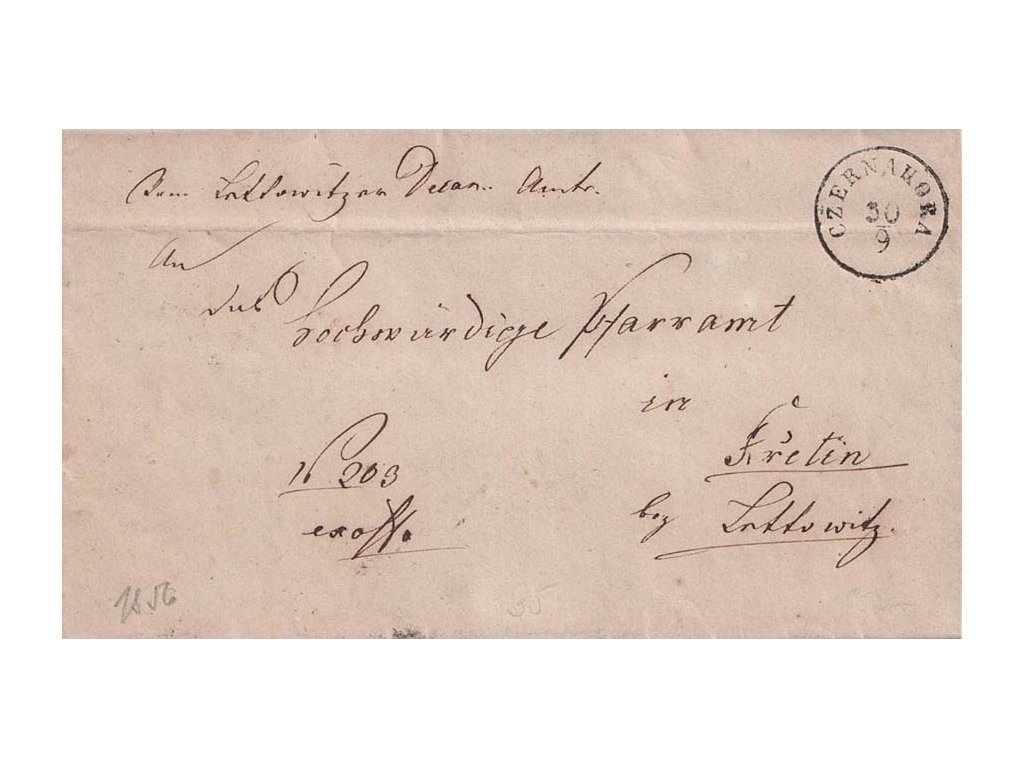 Vom Lettowitzer Decan.. Amte.
CZERNAHORA
30
9
An
das
Hochwürdige Pfarramt
in
Křetin
N 203
bey Lettowitz.
ex offo
1856
35